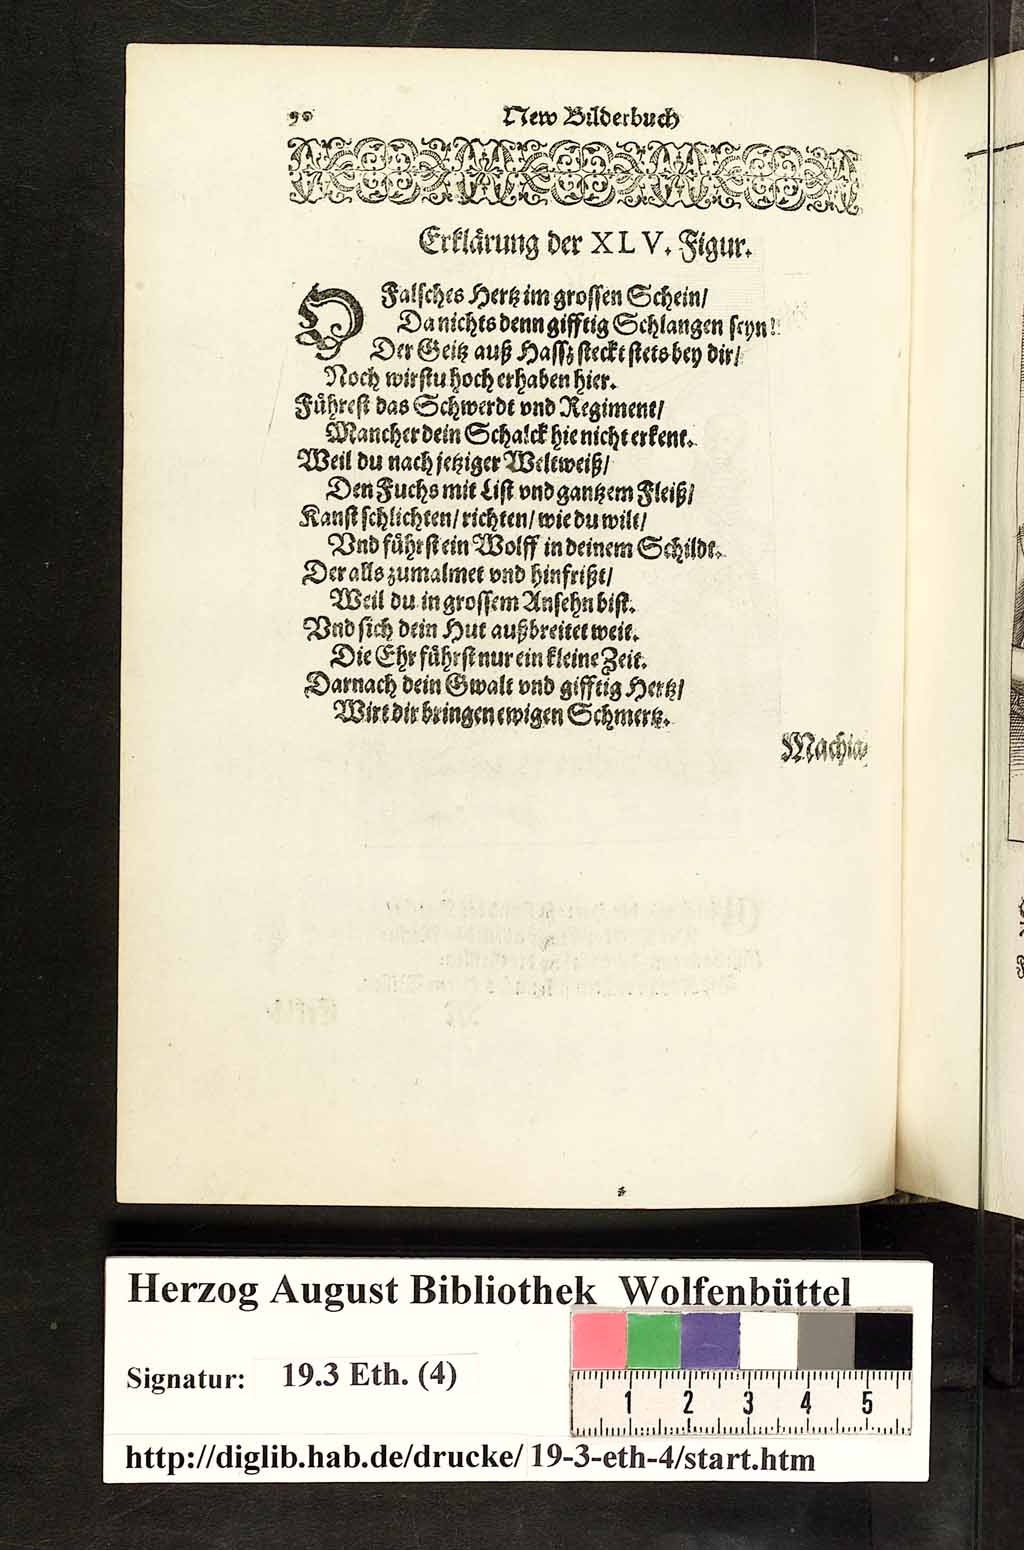 90 New Bilderbuch
Erklärung der XLV. Figur.
O Falsches Hertz im grossen Schein/
Da nichts denn gifftig Schlangen seyn!
Der Geitz auß Hassz steckt stets bey dir/
Noch wirstu hoch erhaben hier.
Führest das Schwerdt vnd Regiment/
Mancher dein Schalck hie nicht erkent.
Weil du nach jetziger Weltweiß/
Den Fuchs mit List vnd gantzem Fleiß/
Kanst schlichten/ richten/ wie du wilt/
Vnd führst ein Wolff in deinem Schildt.
Der alls zumalmet vnd hinfrißt/
Weil du in grossem Ansehn bist.
Vnd sich dein Hut außbreitet weit.
Die Ehr führst nur ein kleine Zeit.
Darnach dein Gwalt vnd gifftig Hertz/
Wirt dir bringen ewigen Schmertz.
Machia-
Herzog August Bibliothek Wolfenbüttel
Signatur: 19.3 Eth. (4)
1 2 3 4 5
http://diglib.hab.de/drucke/ 19-3-eth-4/start.htm